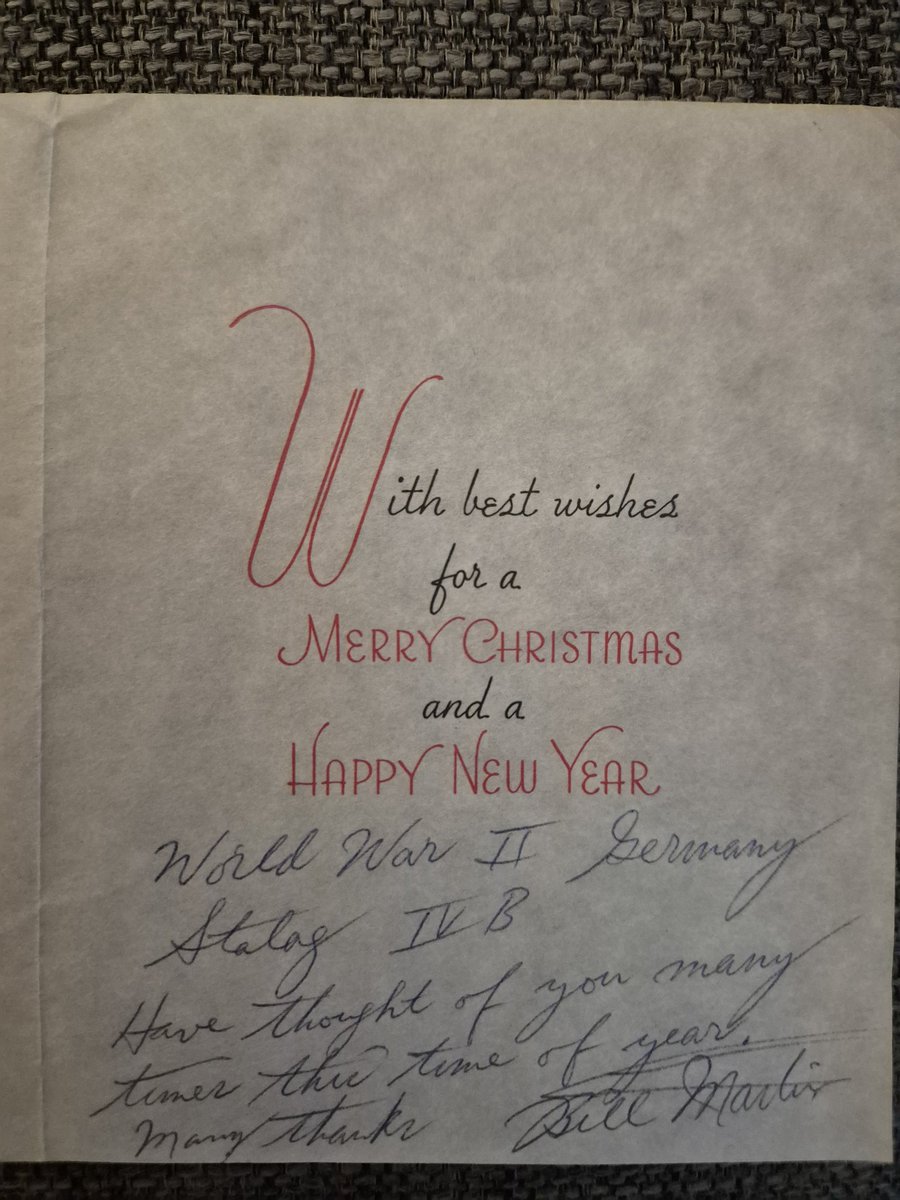 With best wishes
for a
MERRY CHRISTMAS
and a
HAPPY NEW YEAR
World War II Germany
Stalag IV B
Have thought of you many
times this time of year.
Many thanks Bill Martin